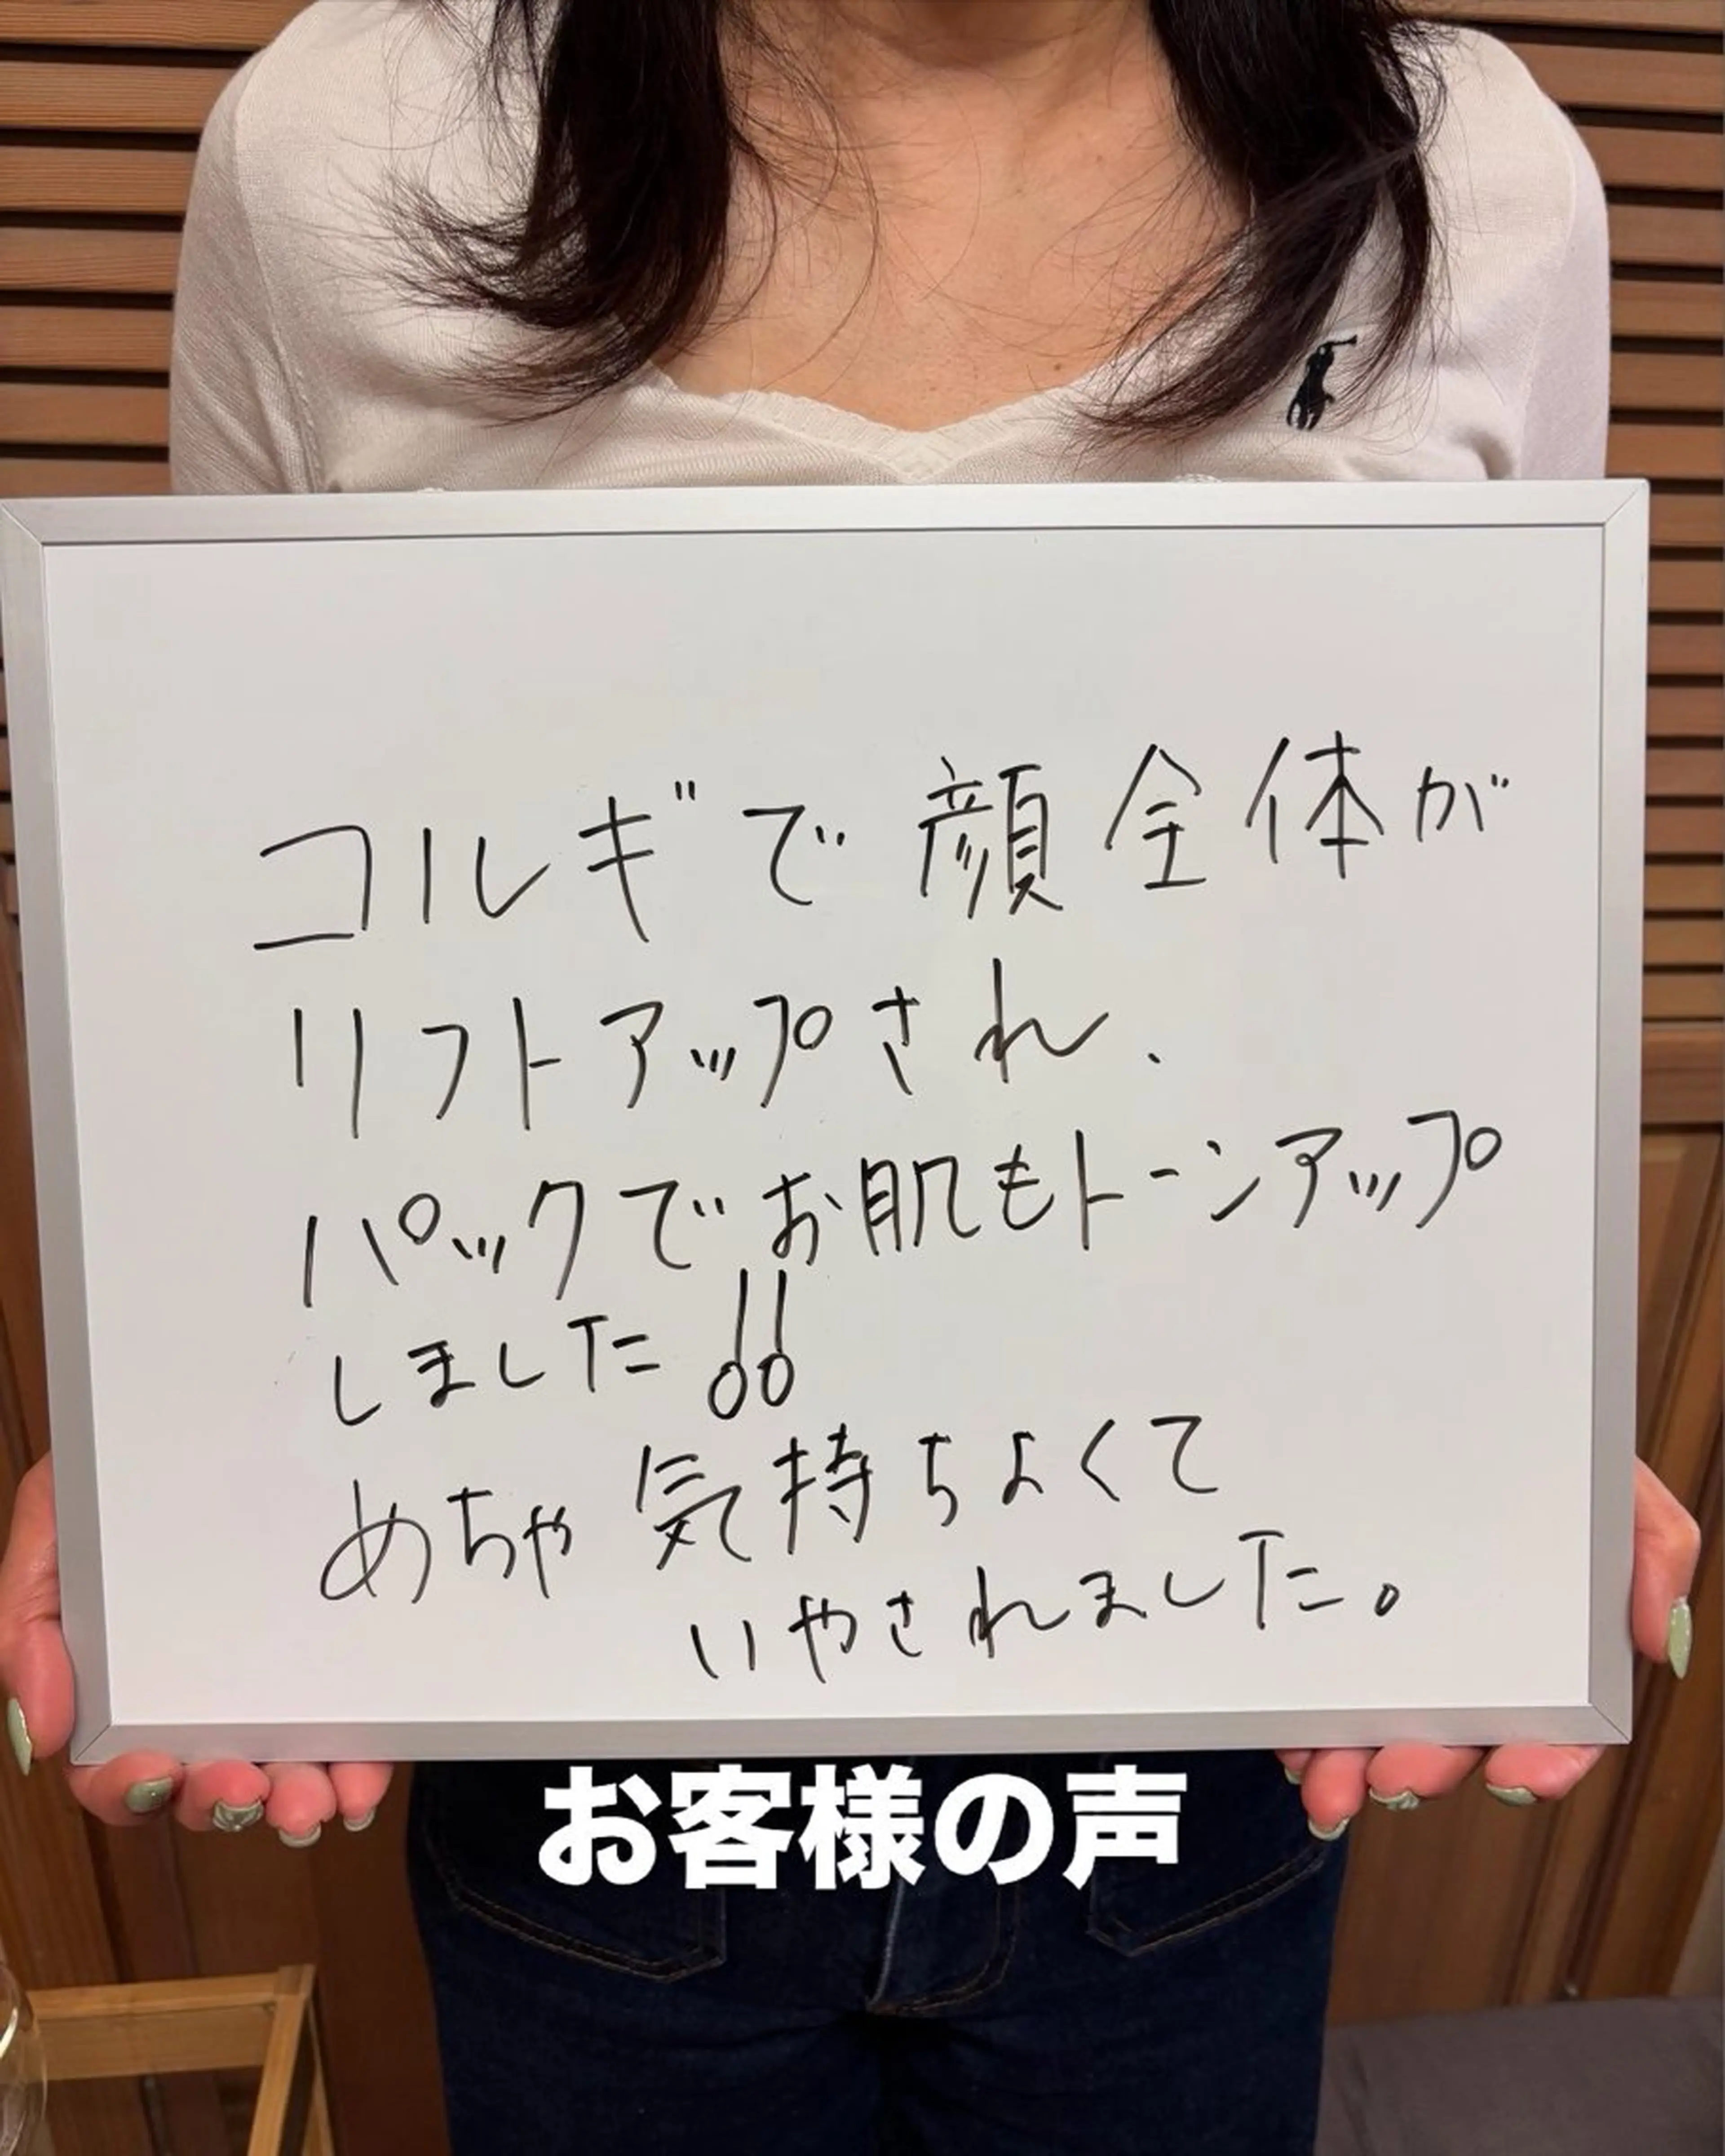 コルギで顔全体が
リフトアップされ、
パックでお肌もトーンアップ
しました!!
めちゃ気持ちよくて
いやされました。
お客様の声